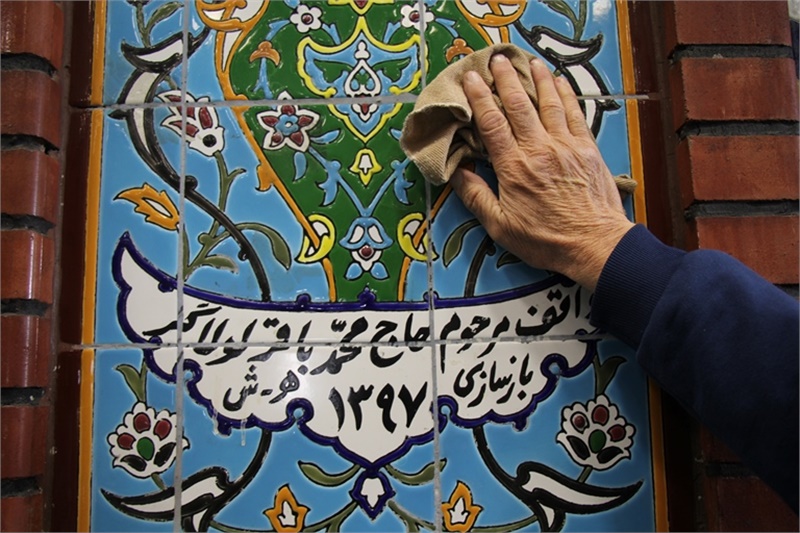 واقف مرحوم حاج محمّد باقر لولاگر
بازسازی ۱۳۹۷ هـ-ش